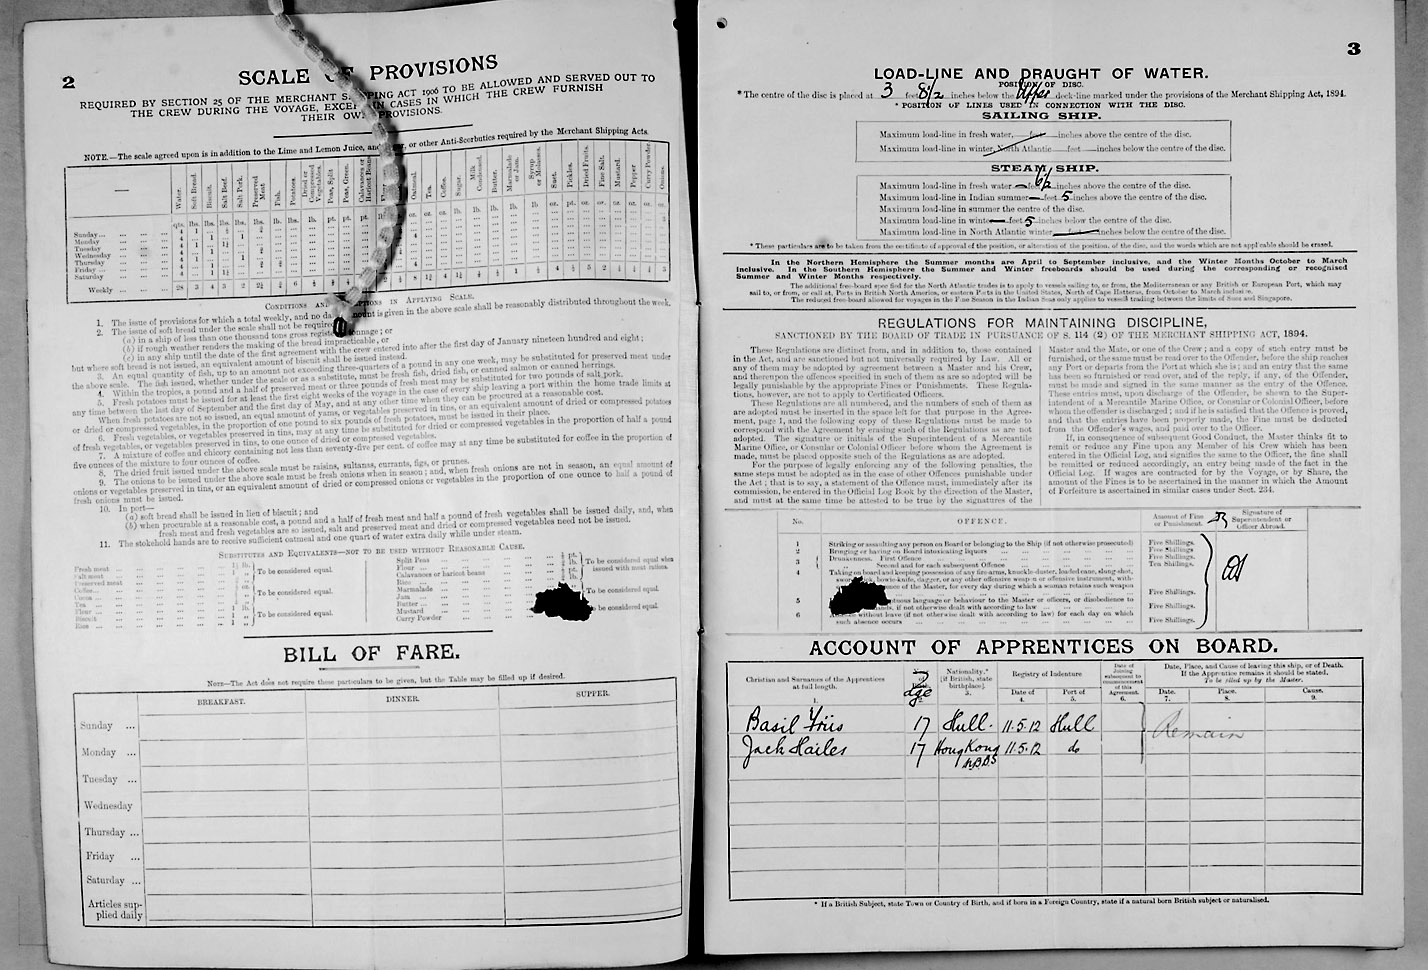 2
SCALE OF PROVISIONS
REQUIRED BY SECTION 25 OF THE MERCHANT SHIPPING ACT 1906 TO BE ALLOWED AND SERVED OUT TO
THE CREW DURING THE VOYAGE, EXCEPT IN CASES IN WHICH THE CREW FURNISH
THEIR OWN PROVISIONS.
NOTE.—The scale agreed upon is in addition to the Lime and Lemon Juice, and or other Anti-Scorbutics required by the Merchant Shipping Acts.
Water. Soft Bread. Biscuit. Salt Beef. Salt Pork. Preserved Meat Fish. Potatoes. Dried or Compressed Vegetables. Peas, Split Peas, Green. Calavances or Haricot Beans Oatmeal. Tea. Coffee. Sugar. Milk Condensed. Butter. Marmalade or Jam. Syrup or Molasses. Suet. Pickles. Dried Fruits. Fine Salt. Mustard. Pepper Curry Powder. Onions.
Sunday...
Monday
Tuesday
Wednesday
Thursday
Friday
Saturday
Weekly
CONDITIONS AND EXCEPTIONS IN APPLYING SCALE.
1. The issue of provisions for which a total weekly, and no daily amount is given in the above scale shall be reasonably distributed throughout the week.
2. The issue of soft bread under the scale shall not be required—
(a) in a ship of less than one thousand tons gross register tonnage; or
(b) if rough weather renders the making of the bread impracticable, or
(c) in any ship until the date of the first agreement with the crew entered into after the first day of January nineteen hundred and eight;
but where soft bread is not issued, an equivalent amount of biscuit shall be issued instead.
3. An equal quantity of fish, up to an amount not exceeding three-quarters of a pound in any one week, may be substituted for preserved meat under
the above scale. The fish issued, whether under the scale or as a substitute, must be fresh fish, dried fish, or canned salmon or canned herrings.
4. Within the tropics, a pound and a half of preserved meat or three pounds of fresh meat may be substituted for two pounds of salt pork.
5. Fresh potatoes must be issued for at least the first eight weeks of the voyage in the case of every ship leaving a port within the home trade limits at
any time between the last day of September and the first day of May, and at any other time when they can be procured at a reasonable cost.
When fresh potatoes are not so issued, an equal amount of yams, or vegetables preserved in tins, or an equivalent amount of dried or compressed potatoes
or dried or compressed vegetables, in the proportion of one pound to six pounds of fresh potatoes, must be issued in their place.
6. Fresh vegetables, or vegetables preserved in tins, may at any time be substituted for dried or compressed vegetables in the proportion of half a pound
of fresh vegetables, or vegetables preserved in tins, to one ounce of dried or compressed vegetables.
7. A mixture of coffee and chicory containing not less than seventy-five per cent. of coffee may at any time be substituted for coffee in the proportion of
five ounces of the mixture to four ounces of coffee.
8. The dried fruit issued under the above scale must be raisins, sultanas, currants, figs, or prunes.
9. The onions to be issued under the above scale must be fresh onions when in season; and, when fresh onions are not in season, an equal amount of
onions or vegetables preserved in tins, or an equivalent amount of dried or compressed onions or vegetables in the proportion of one ounce to half a pound of
fresh onions must be issued.
10. In port—
(a) soft bread shall be issued in lieu of biscuit; and
(b) when procurable at a reasonable cost, a pound and a half of fresh meat and half a pound of fresh vegetables shall be issued daily, and, when
fresh meat and fresh vegetables are so issued, salt and preserved meat and dried or compressed vegetables need not be issued.
11. The stokehold hands are to receive sufficient oatmeal and one quart of water extra daily while under steam.
SUBSTITUTES AND EQUIVALENTS—NOT TO BE USED WITHOUT REASONABLE CAUSE.
Fresh meat
Salt meat
Preserved meat
To be considered equal.
Coffee
Cocoa
Tea
To be considered equal.
Flour
Biscuit
Rice
To be considered equal.
Split Peas
Flour
Calavances or haricot beans
Rice
To be considered equal when issued with meat rations.
Marmalade
Jam
Butter
To be considered equal.
Mustard
Curry Powder
To be considered equal.
BILL OF FARE.
NOTE—The Act does not require these particulars to be given, but the Table may be filled up if desired.
BREAKFAST. DINNER. SUPPER.
Sunday ...
Monday ...
Tuesday ...
Wednesday
Thursday ...
Friday ...
Saturday ...
Articles sup-
plied daily
3
LOAD-LINE AND DRAUGHT OF WATER.
POSITION OF DISC.
* The centre of the disc is placed at 3 feet 8½ inches below the Upper deck-line marked under the provisions of the Merchant Shipping Act, 1894.
* POSITION OF LINES USED IN CONNECTION WITH THE DISC.
SAILING SHIP.
Maximum load-line in fresh water, feet inches above the centre of the disc.
Maximum load-line in winter, North Atlantic feet inches below the centre of the disc.
STEAM SHIP.
Maximum load-line in fresh water — feet 6½ inches above the centre of the disc.
Maximum load-line in Indian summer — feet 5 inches above the centre of the disc.
Maximum load-line in summer the centre of the disc.
Maximum load-line in winter — feet 5 inches below the centre of the disc.
Maximum load-line in North Atlantic winter feet inches below the centre of the disc.
* These particulars are to be taken from the certificate of approval of the position, or alteration of the position, of the disc, and the words which are not applicable should be erased.
In the Northern Hemisphere the Summer months are April to September inclusive, and the Winter Months October to March
inclusive. In the Southern Hemisphere the Summer and Winter freeboards should be used during the corresponding or recognised
Summer and Winter Months respectively.
The additional freeboard specified for the North Atlantic trades is to apply to vessels sailing to, or from, the Mediterranean or any British or European Port, which may
sail to, or from, or call at, Ports in British North America, or eastern Ports in the United States, North of Cape Hatteras, from October to March inclusive.
The reduced freeboard allowed for voyages in the Fine Season in the Indian Seas only applies to vessels trading between the limits of Suez and Singapore.
REGULATIONS FOR MAINTAINING DISCIPLINE,
SANCTIONED BY THE BOARD OF TRADE IN PURSUANCE OF S. 114 (2) OF THE MERCHANT SHIPPING ACT, 1894.
These Regulations are distinct from, and in addition to, those contained
in the Act, and are sanctioned but not universally required by Law. All or
any of them may be adopted by agreement between a Master and his Crew,
and thereupon the offences specified in such of them as are so adopted will be
legally punishable by the appropriate Fines or Punishments. These Regula-
tions, however, are not to apply to Certificated Officers.
These Regulations are all numbered, and the numbers of such of them as
are adopted must be inserted in the space left for that purpose in the Agree-
ment, page 1, and the following copy of these Regulations must be made to
correspond with the Agreement by erasing such of the Regulations as are not
adopted. The signature or initials of the Superintendent of a Mercantile
Marine Office, or Consular or Colonial Officer before whom the Agreement is
made, must be placed opposite such of the Regulations as are adopted.
For the purpose of legally enforcing any of the following penalties, the
same steps must be adopted as in the case of other Offences punishable under
the Act; that is to say, a statement of the Offence must, immediately after its
commission, be entered in the Official Log Book by the direction of the Master,
and must at the same time be attested to be true by the signatures of the
Master and the Mate, or one of the Crew; and a copy of such entry must be
furnished, or the same must be read over to the Offender, before the ship reaches
any Port or departs from the Port at which she is; and an entry that the same
has been so furnished or read over, and of the reply, if any, of the Offender,
must be made and signed in the same manner as the entry of the Offence.
These entries must, upon discharge of the Offender, be shewn to the Super-
intendent of a Mercantile Marine Office, or Consular or Colonial Officer, before
whom the offender is discharged; and if he is satisfied that the Offence is proved,
and that the entries have been properly made, the Fine must be deducted
from the Offender's wages, and paid over to the Officer.
If, in consequence of subsequent Good Conduct, the Master thinks fit to
remit or reduce any Fine upon any Member of his Crew which has been
entered in the Official Log, and signifies the same to the Officer, the fine shall
be remitted or reduced accordingly, an entry being made of the fact in the
Official Log. If wages are contracted for by the Voyage, or by Share, the
amount of the Fines is to be ascertained in the manner in which the Amount
of Forfeiture is ascertained in similar cases under Sect. 234.
No. OFFENCE. Amount of Fine or Punishment. Signature of Superintendent or Officer Abroad.
1 Striking or assaulting any person on Board or belonging to the Ship (if not otherwise prosecuted) Five Shillings.
2 Bringing or having on Board intoxicating liquors Five Shillings.
3 Drunkenness. First Offence Five Shillings.
Second and for each subsequent Offence Ten Shillings.
4 Taking on board and keeping possession of any fire-arms, knuckle-duster, loaded cane, slung-shot,
bowie-knife, dagger, or any other offensive weapon or offensive instrument, with-
of the Master, for every day during which a seaman retains such weapon Five Shillings.
5 language or behaviour to the Master or officers, or disobedience to
if not otherwise dealt with according to law Five Shillings.
6 without leave (if not otherwise dealt with according to law) for each day on which
such absence occurs Five Shillings.
ACCOUNT OF APPRENTICES ON BOARD.
Christian and Surnames of the Apprentices at full length. 1. Age Nationality.* [if British, state birthplace]. 3. Registry of Indenture Date of 4. Port of 5. Date of Joining subsequent to commencement of this Agreement. 6. Date, Place, and Cause of leaving this ship, or of Death. If the Apprentice remains it should be stated. To be filled up by the Master. Date. 7. Place. 8. Cause. 9.
Basil Friis 17 Hull. 11.5.12 Hull Remain
Jack Hailes 17 Hong Kong 11.5.12 do
NBBS
* If a British Subject, state Town or Country of Birth, and if born in a Foreign Country, state if a natural born British subject or naturalised.